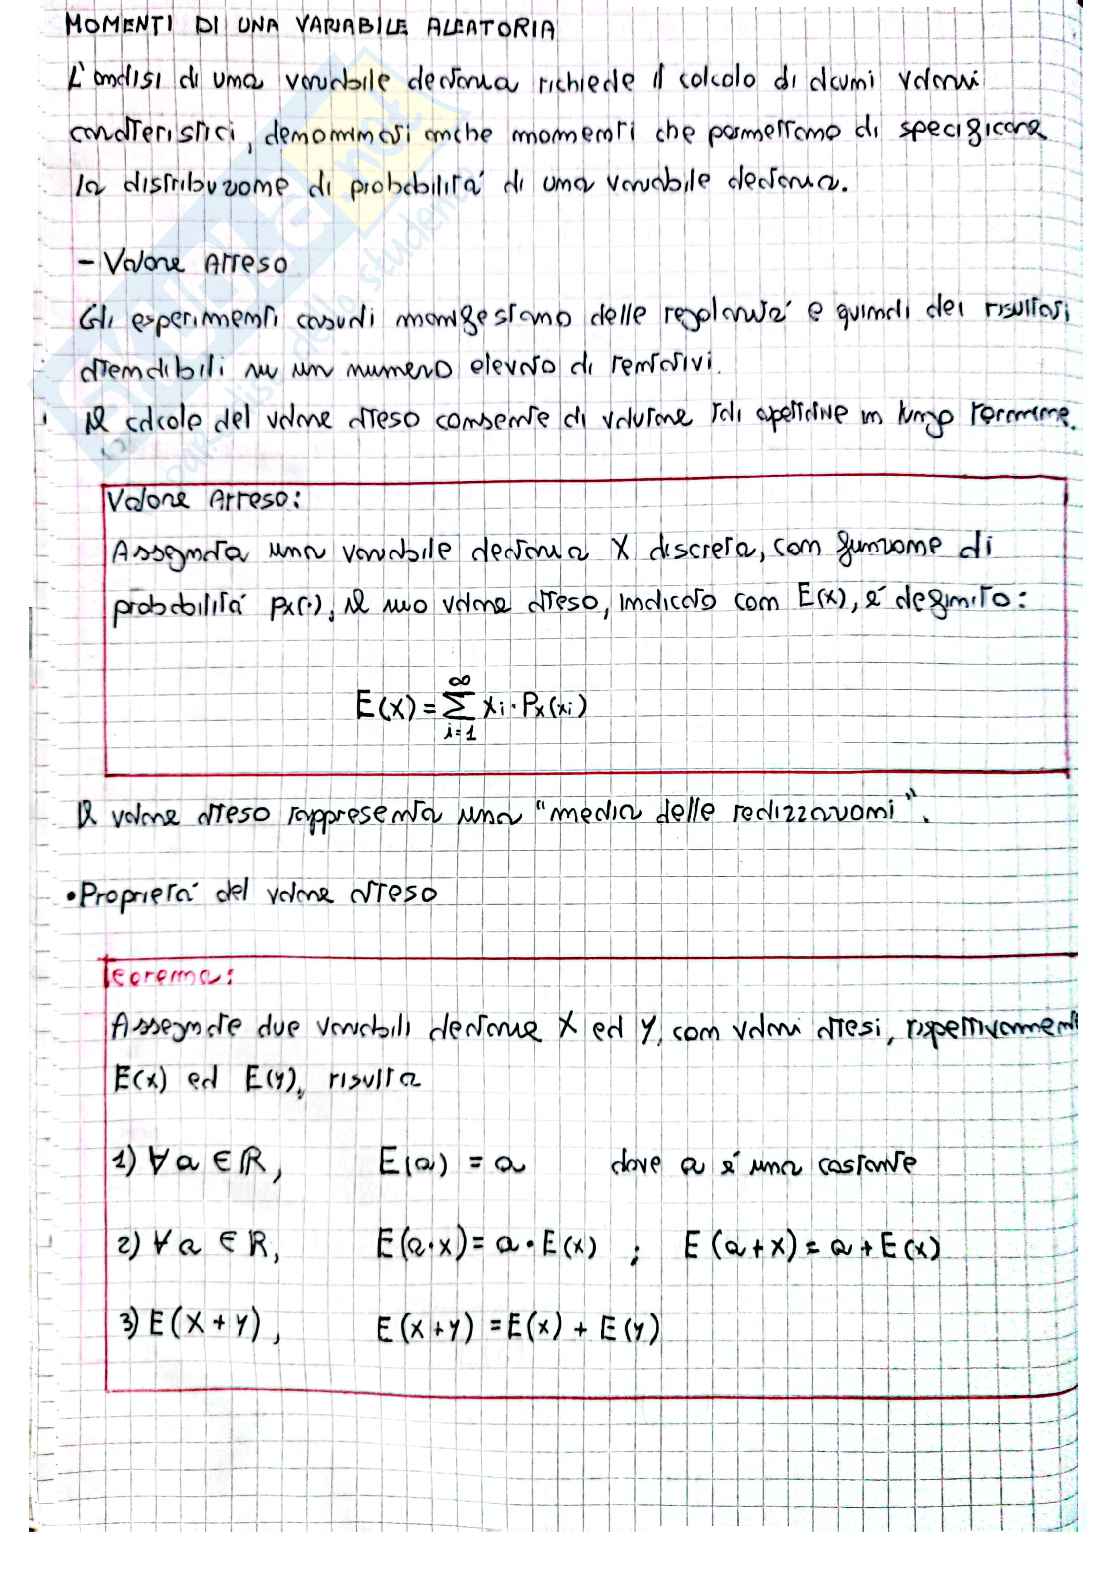 MOMENTI DI UNA VARIABILE ALEATORIA
L'analisi di una variabile aleatoria richiede il calcolo di alcuni valori
caratteristici, denominati anche momenti che permettono di specificare
la distribuzione di probabilità di una variabile aleatoria.
- Valore Atteso
Gli esperimenti casuali manifestano delle regolarità e quindi dei risultati
attendibili su un numero elevato di tentativi.
Il calcolo del valore atteso consente di valutare tali aspettative in lungo termine.
Valore Atteso:
Assegnata una variabile aleatoria X discreta, con funzione di
probabilità px(·), il suo valore atteso, indicato con E(x), é definito:
E(x) = ∑ xi · Px(xi)
∞
i=1
Il valore atteso rappresenta una "media delle realizzazioni".
• Proprietà del valore atteso
Teorema:
Assegnate due variabili aleatorie X ed Y, con valori attesi, rispettivamen
E(x) ed E(y), risulta
1) ∀ a ∈ ℝ, E(a) = a dove a é una costante
2) ∀ a ∈ ℝ, E(a·x) = a · E(x) ; E(a+x) = a + E(x)
3) E(X+Y), E(x+y) = E(x) + E(y)
SKUOLA.net